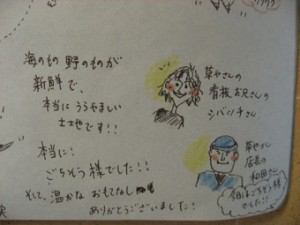 海のもの 野のものが
新鮮で、
本当にうらやましい
土地です!!
本当に!
ごちそう様でした!!
そして、温かなおもてなし
ありがとうございました!
草やさんの
看板お兄さんの
シバッチさん
草やさん
店長の
和田さん
今日はごちそう様
でした!!